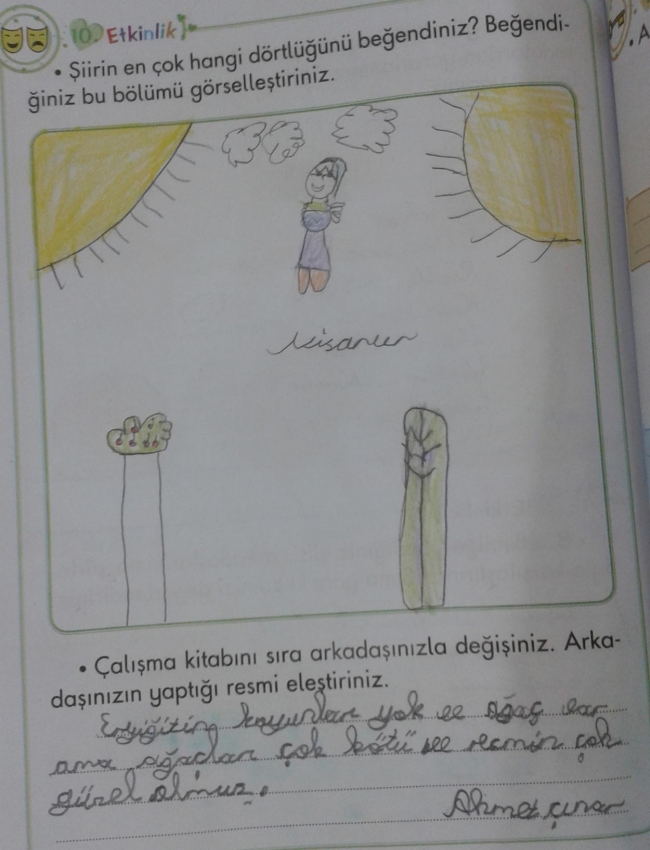 10. Etkinlik
• Şiirin en çok hangi dörtlüğünü beğendiniz? Beğendi-
ğiniz bu bölümü görselleştiriniz.
Nisanur
• Çalışma kitabını sıra arkadaşınızla değişiniz. Arka-
daşınızın yaptığı resmi eleştiriniz.
koyunları yok ve ağaç var
ama ağaçları çok kötü ve resmin çok
güzel olmuş.
Ahmet çınar